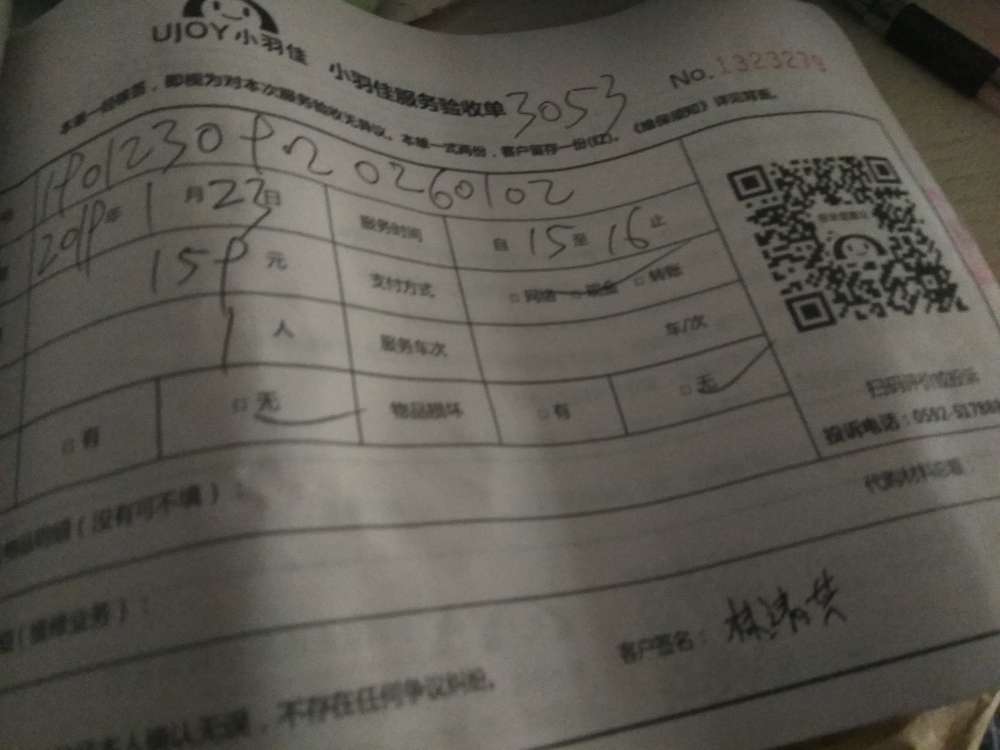 UJOY小羽佳
小羽佳服务验收单 3053 No.1323279
本单一经签署，即视为对本次服务验收无争议。本单一式两份，客户留存一份(红)。《维保须知》详见背面。
2019年1月23日 服务时间 自15至16止
159元 支付方式 □网络 □现金 □转账
1人 服务车次 车/次
□有 □无 物品损坏 □有 □无
扫码评价或投诉
投诉电话：0592-517886
(没有可不填)：
(维修业务)：
客户签名：
本人确认无误，不存在任何争议纠纷。